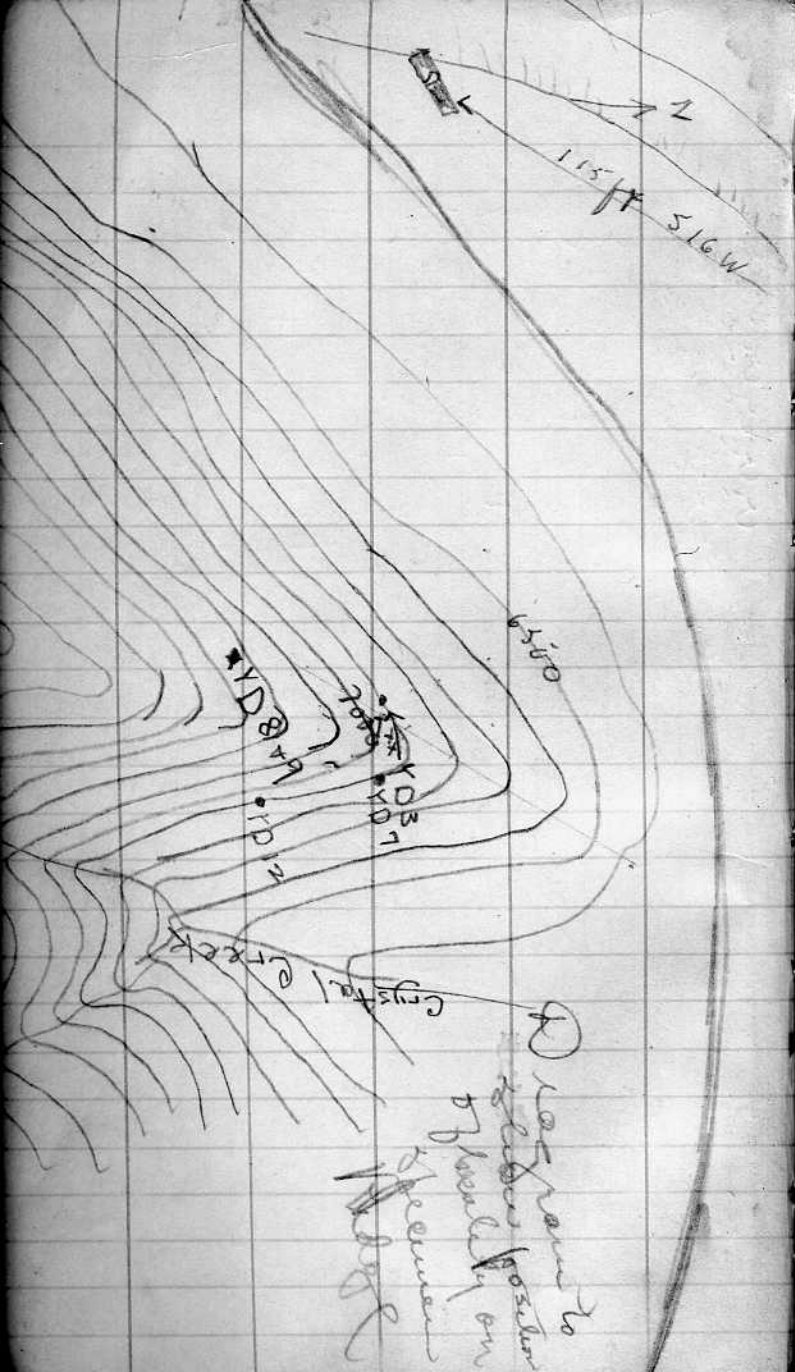 N
115 ft S16W
6500
7000
YD8+9
YD3
YD7
YD12
Crystal Creek
Diagram to
show position
of locality on
Specimen
Ridge